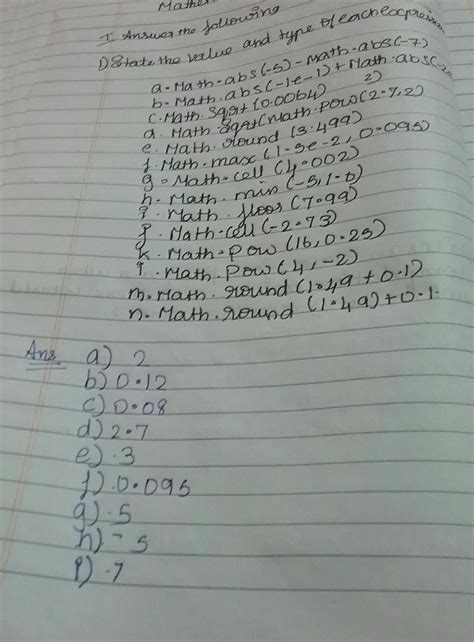 Mathe
I Answer the following
1) State the value and type of each expression
a. Math.abs(-5) - Math.abs(-7)
b. Math.abs(-1e-1) + Math.abs(-2e
c. Math.sqrt(0.0064) 2)
d. Math.sqrt(Math.pow(2.7,2)
e. Math.round(3.499)
f. Math.max(1.5e-2, 0.095)
g. Math.ceil(4.002)
h. Math.min(-5,1.5)
i. Math.floor(7.99)
j. Math.ceil(-2.73)
k. Math.pow(16,0.25)
l. Math.pow(4,-2)
m. Math.round(1.49 + 0.1)
n. Math.round(1.49)+0.1.
Ans. a) 2
b) 0.12
c) 0.08
d) 2.7
e) .3
f) .0.095
g) .5
h) -5
i) .7